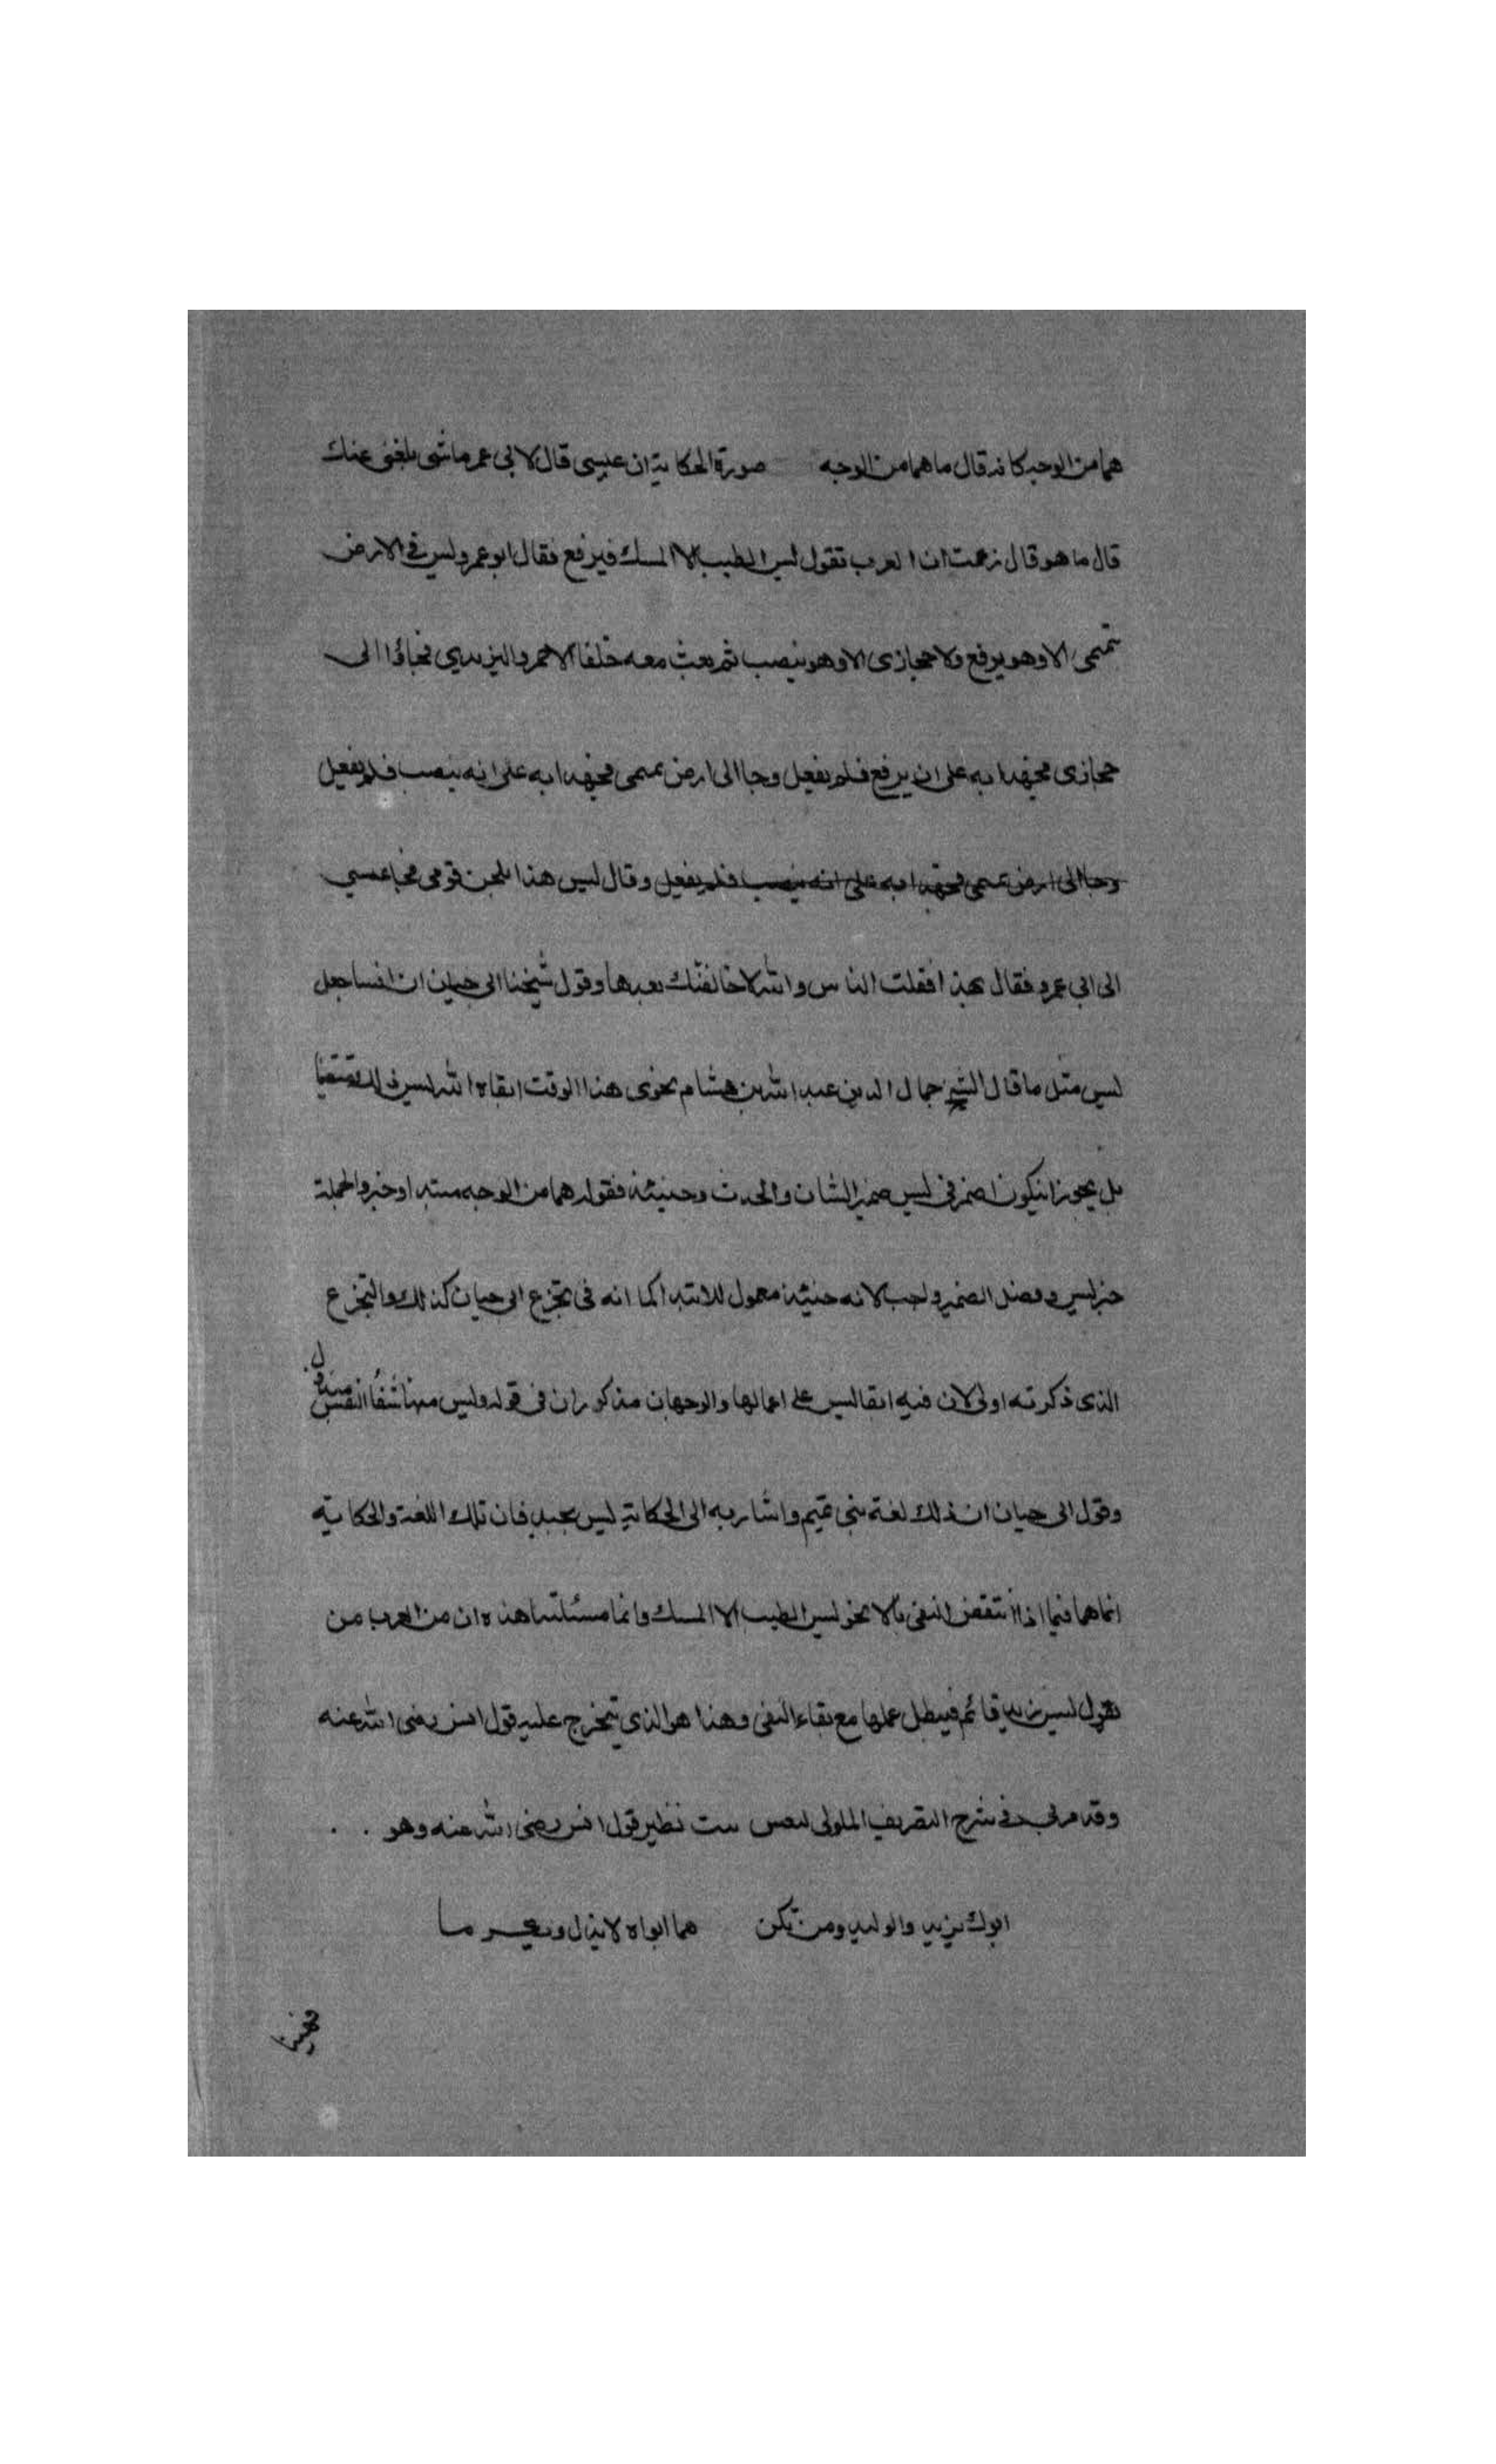 هما من الوجه كانه قال ما هما من الوجه صورة الحكاية ان عيسى قال لابي عمر ما شي بلغني عنك
قال ما هو قال زعمت ان العرب تقول ليس الطيب الا المسك فيرفع فقال ابو عمرو ليس في الارض
تميمى الا وهو يرفع ولا حجازى الا وهو ينصب ثم بعث معه خلفا الاحمر واليزيدي فجاؤا الى
حجازى فجهدا به على ان يرفع فلم يفعل وجا الى ارض تميمى فجهدا به على انه ينصب فلم يفعل
وجا الى ارض تميمى فجهدا به على انه ينصب فلم يفعل وقال ليس هذا بلحن قومى فجا عيسى
الى ابى عمرو فقال بهذا فقلت الناس والله لا خالفتك بعدها وقول شيخنا ابى حيان ان انسا جعل
ليس مثل ما قال الشيخ جمال الدين عبد الله بن هشام نحوى هذا الوقت ابقاه الله ليس ذلك متعينا
بل يجوز ان يكون اضمر في ليس ضمير الشان والحدث وحينئذ فقوله هما من الوجه مبتدا وخبر والجملة
خبر ليس وفصل الضمير واجب لانه حينئذ معمول للابتدا كما انه في تخرع ابى حيان كذلك والتخرع
الذى ذكرته اولى لان فيه ابقا ليس على اعمالها والوجهان مذكوران فى قوله وليس منها شفا النفس مبذول
وقول ابى حيان ان ذلك لغة بنى تميم واشار به الى الحكاية ليس بجيد فان تلك اللغة والحكاية
انما هما فيما اذا انتقض النفى بالا نحو ليس الطيب الا المسك وانما مسئلتنا هذه ان من العرب من
يقول ليس زيد قائم فيبطل عملها مع بقاء النفى وهذا هو الذى يتخرج عليه قول انس رضى الله عنه
وقد مر بى فى شرح التصريف الملوكى لبعض بيت نظير قول انس رضى الله عنه وهو . .
ابوك يزيد والوليد ومن تكن هما ابواه لا يذل ويكرما